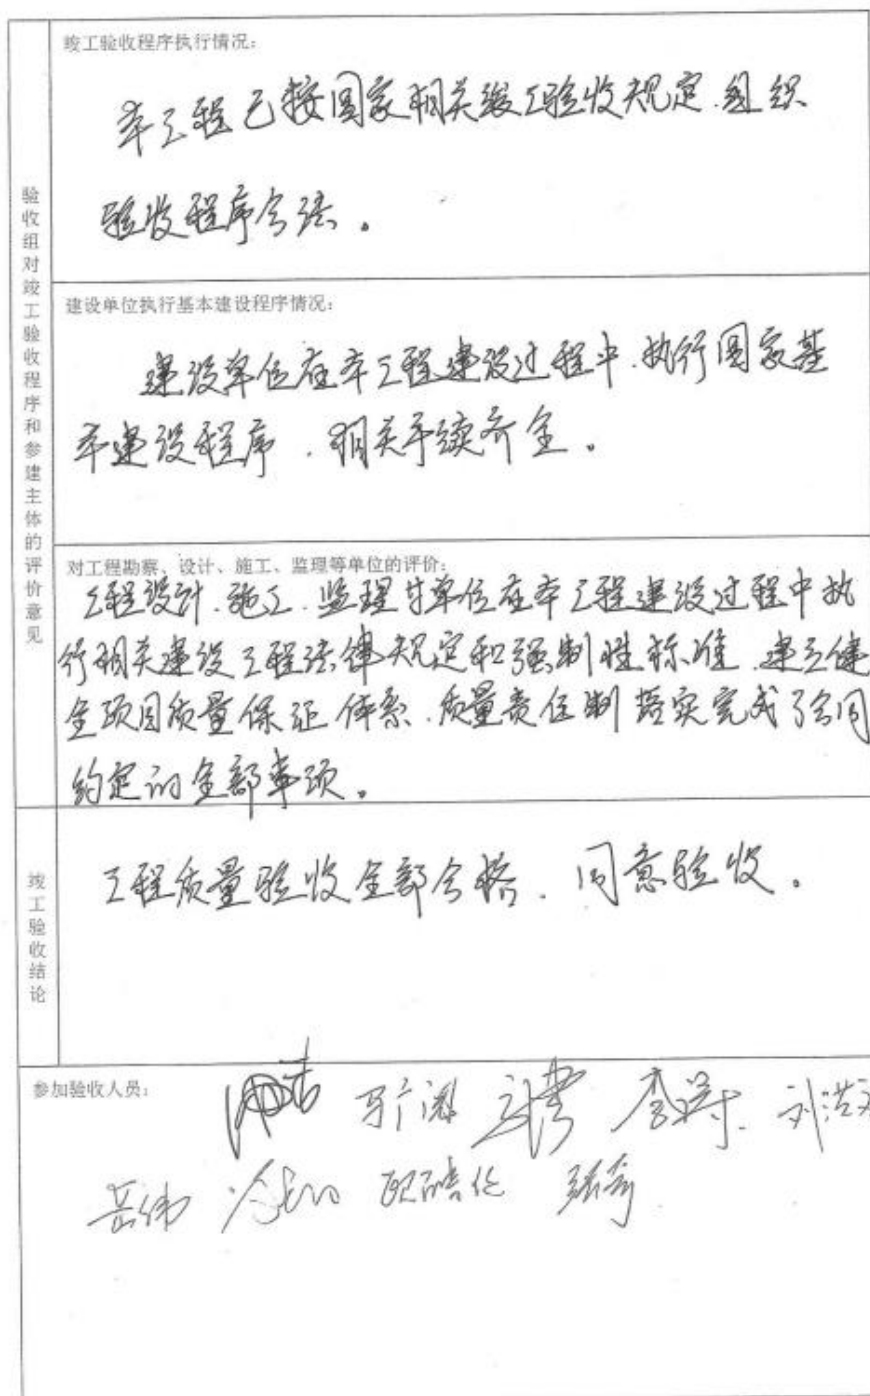 验收组对竣工验收程序和参建主体的评价意见
竣工验收程序执行情况：
本工程已按国家相关竣工验收规定.组织
验收程序合法。
建设单位执行基本建设程序情况：
建设单位在本工程建设过程中.执行国家基
本建设程序.相关手续齐全。
对工程勘察、设计、施工、监理等单位的评价：
工程设计.施工.监理等单位在本工程建设过程中执
行相关建设工程法律规定和强制性标准.建立健
全项目质量保证体系.质量责任制落实完成了合同
约定的全部事项。
竣工验收结论
工程质量验收全部合格.同意验收。
参加验收人员：
岳伟